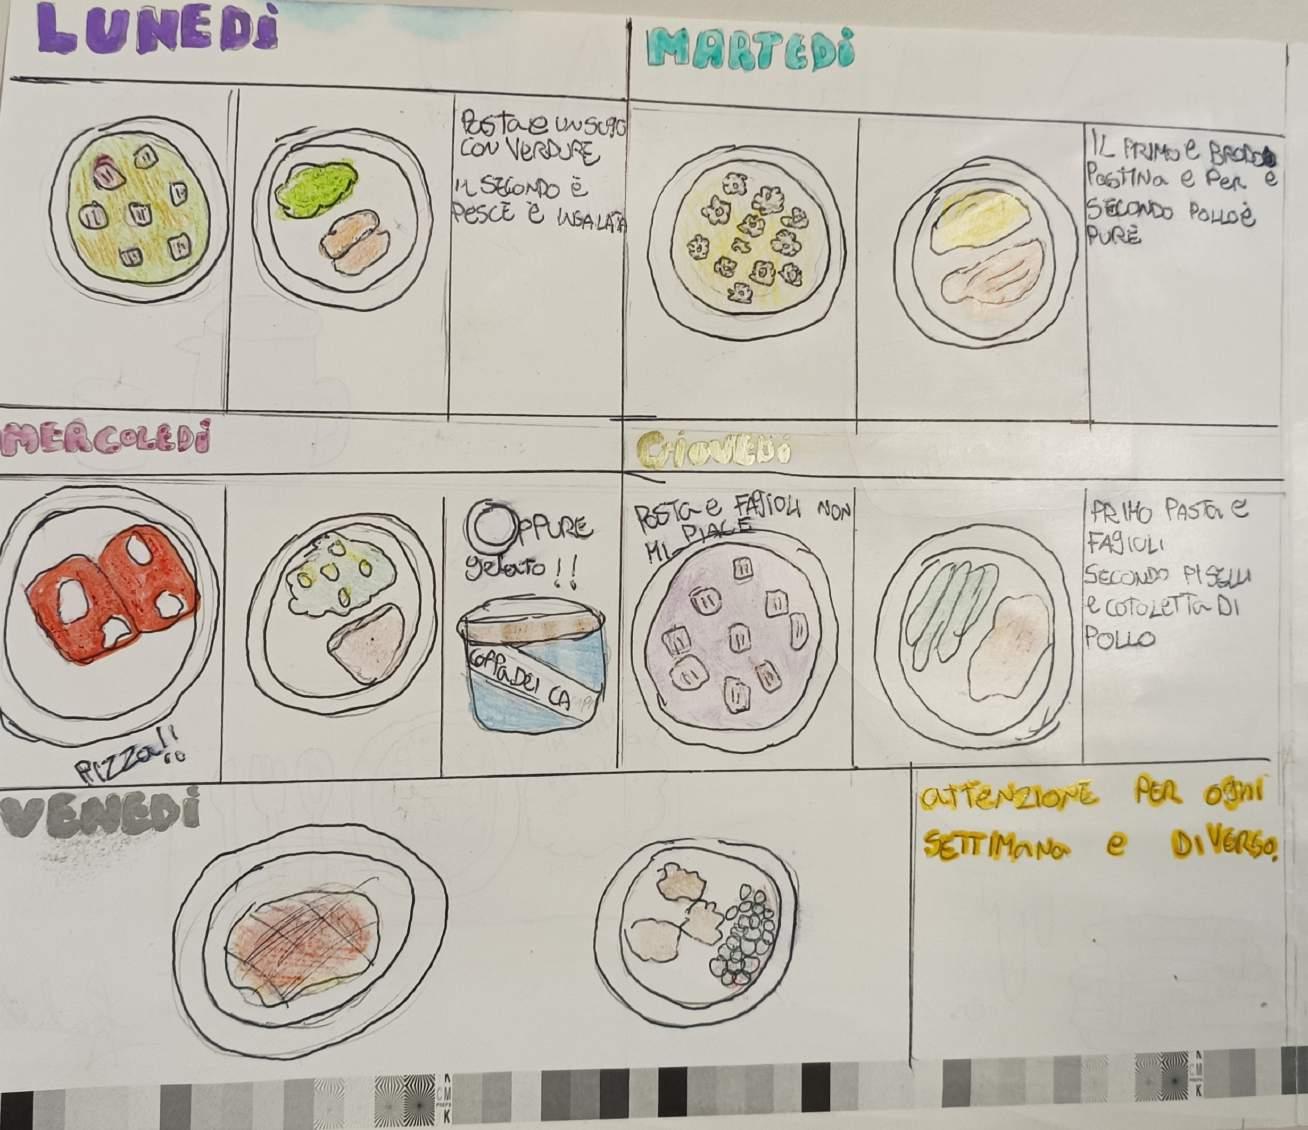 LUNEDì
Pasta e un sugo
CON VERDURE
IL SECONDO è
PESCE E INSALATA
MARTEDì
IL PRIMO e BRODO
PaSTINa e PeR e
SECONDO POLLO è
PURE
MERCOLEDì
PIZZa!!
OPPURE
gelato!!
COPPA DEI CA
GIOVEDì
PaSTa e FAgIOLI NON
MI PIACE
PRIMO PASTa e
FAgIOLI
SECONDO PISELLI
e COTOLETTa DI
POLLO
VENEDì
aTTeNZIONE PER OgNI
SETTIMaNa e DIVERSO.
K
CM
K
K
CM
K